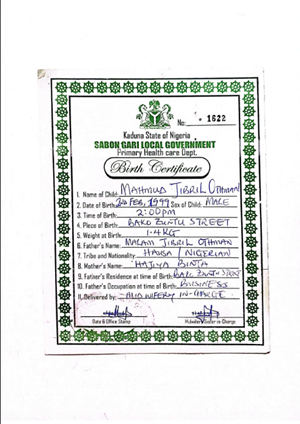 No: 1622
Kaduna State of Nigeria
SABON GARI LOCAL GOVERNMENT
Primary Health care Dept.
Birth Certificate
1. Name of Child: MAHMUD JIBRIL OTHMAN
2. Date of Birth: 2nd Feb, 1999 Sex of Child: MALE
3. Time of Birth: 2:00PM
4. Place of Birth: BAKO ZUNTU STREET
5. Weight at Birth: 1.4KG
6. Father's Name: MALAM JIBRIL OTHMAN
7. Tribe and Nationality: HAUSA / NIGERIAN
8. Mother's Name: HAJIYA BINTA
9. Father's Residence at time of Birth:
10. Father's Occupation at time of Birth: BUSINESS
11. Delivered by: MIDWIFERY IN-CHARGE
Date & Office Stamp in-Charge